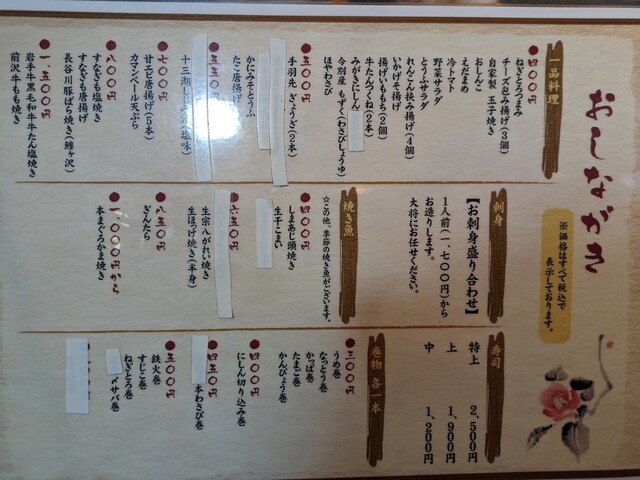 おしながき
※価格はすべて税込で
表示しております。
一品料理
●四〇〇円
ねぎとろつまみ
チーズ包み揚げ(3個)
自家製 玉子焼き
おしんこ
えだまめ
冷トマト
野菜サラダ
とうふサラダ
れんこん挟み揚げ(4個)
いかげそ揚げ
揚げいももち(2個)
牛たんつくね(2本)
みがきにしん
今別産 もずく(わさびしょうゆ)
ほやわさび
●五〇〇円
手羽先 ぎょうざ(2本)
かにみそとうふ
たこ唐揚げ
●五五〇円
十三湖しじみ
●七〇〇円
甘エビ唐揚げ(5本)
カマンベール天ぷら
●八〇〇円
すなぎも塩焼き
すなぎも唐揚げ
長谷川豚ばら焼き(鰺ヶ沢)
●一、五〇〇円
岩手牛黒毛和牛牛たん塩焼き
前沢牛もも焼き
刺身
【お刺身盛り合わせ】
1人前(一、七〇〇円)から
お造りします。
大将にお任せください。
焼き魚
☆この他、季節の焼き魚がございます。
●四〇〇円
しまあじ頭焼き
生干こまい
●六五〇円
生宗八がれい焼き
生ほっけ焼き(半身)
●八五〇円
ぎんたら
●一、〇〇〇円から
本まぐろかま焼き
寿司
特上 2,500円
上 1,900円
中 1,200円
巻物 各一本
●三〇〇円
うめ巻
なっとう巻
かっぱ巻
たまご巻
かんぴょう巻
●四〇〇円
にしん切り込み巻
●四五〇円
本わさび巻
●五〇〇円
鉄火巻
すじこ巻
ねぎとろ巻
〆サバ巻